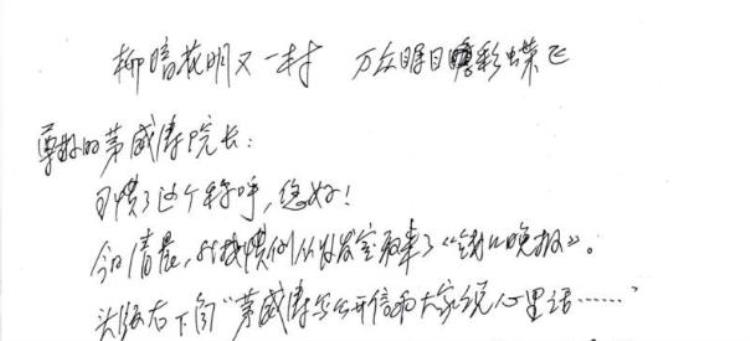 柳暗花明又一村 万众瞩目彩蝶飞
尊敬的茅威涛院长：
习惯了这个称呼，您好！
今日清晨，我惯例从收发室取来了《钱江晚报》。
头版右下角“茅威涛写公开信和大家说心里话……”